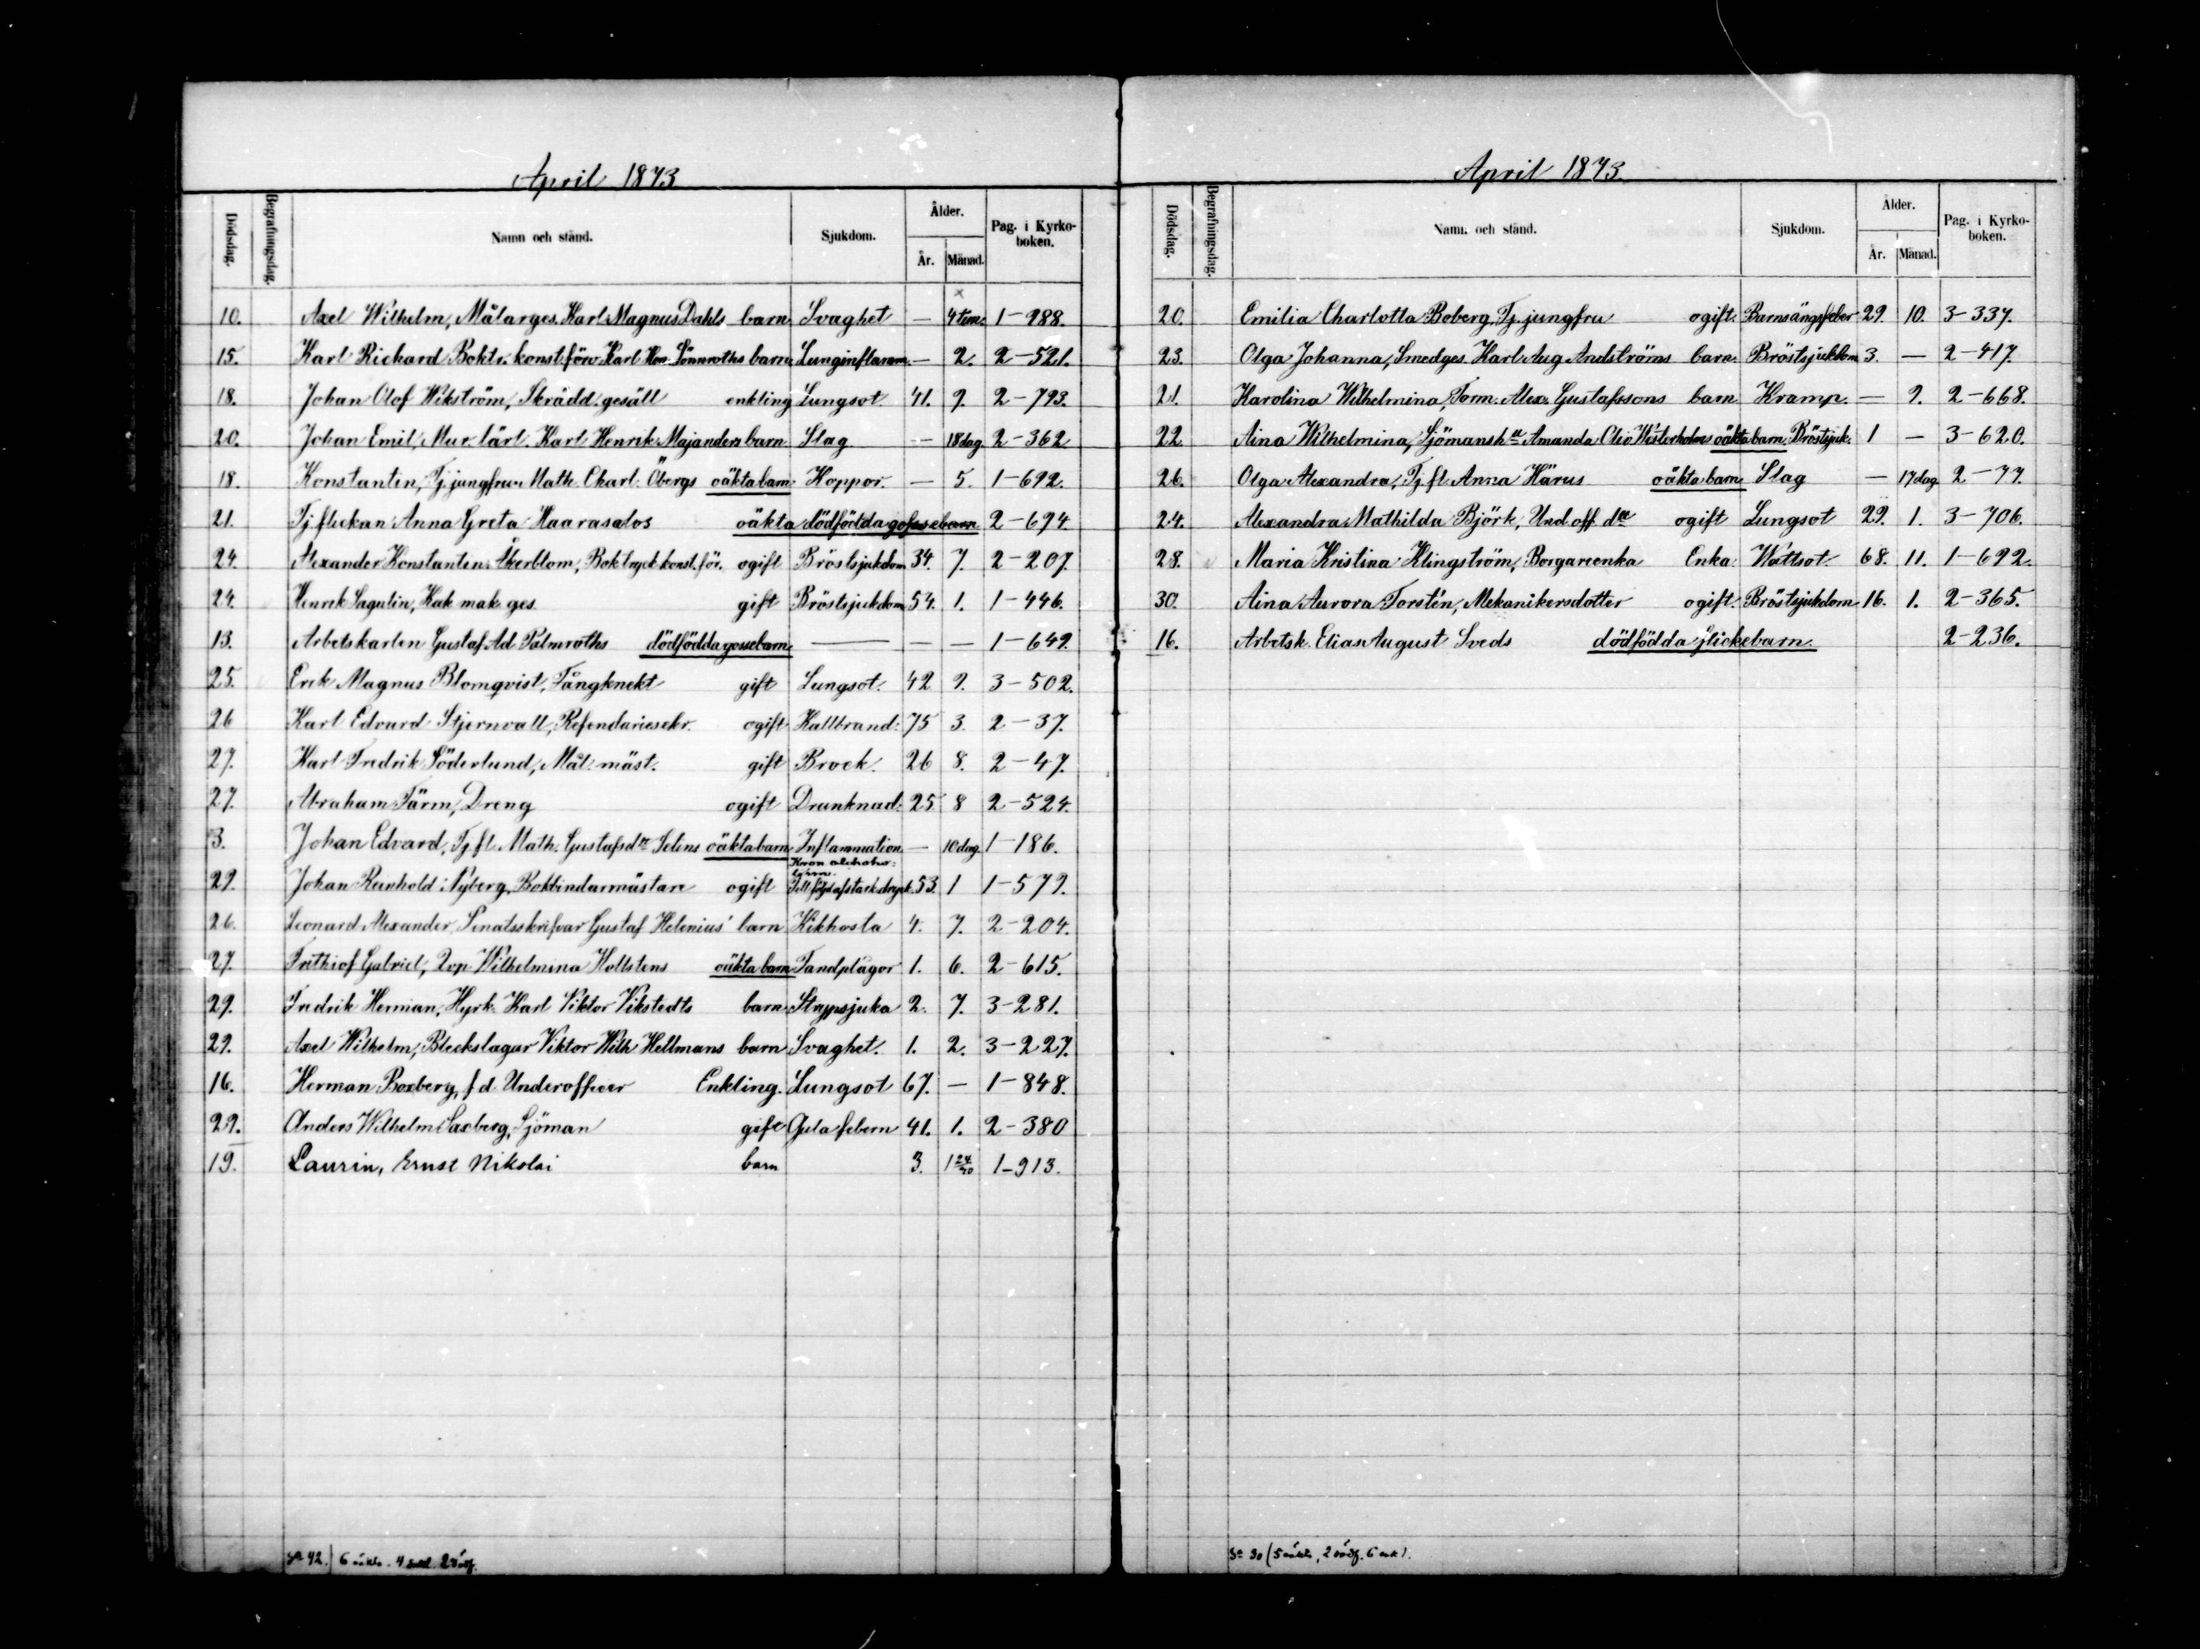 April 1873
Dödsdag. Begrafningsdag. Namn och stånd. Sjukdom. Ålder. År. Månad. Pag. i Kyrkoboken.
10. Axel Wilhelm, Målarges. Karl Magnus Dahls barn Svaghet — 4 tim. 1-988.
15. Karl Richard Boktr. konst. förv. Karl Hen. Lönnroths barn Lunginflamm. — 2. 2-521.
18. Johan Olof Wikström, Skrädd. gesäll enkling Lungsot 41. 9. 2-793.
20. Johan Emil, Mur. lärl. Karl Henrik Majanders barn Slag — 18 dag. 2-362
18. Konstantin, Tj. jungfrun Math. Charl. Öbergs oäkta barn Koppor. — 5. 1-692.
21. Tj. flickan Anna Greta Haarasalos oäkta dödfödda gossebarn 2-694.
24. Alexander Konstantin Åkerblom, Boktryck. konst. för. ogift Bröstsjukdom 34. 7. 2-207.
24. Henrik Sagulin, Kak. mak. ges. gift Bröstsjukdom 54. 1. 1-446.
13. Arbetskarlen Gustaf Ad. Palmroths dödfödda gossebarn — — — 1-649.
25. Erik Magnus Blomqvist, Fångknekt gift Lungsot. 42 9. 3-502.
26 Karl Edvard Stjernvall, Refendariesekr. ogift Kallbrand. 75 3. 2-37.
27. Karl Fredrik Söderlund, Mål. mäst. gift Brock. 26 8. 2-47.
27. Abraham Färm, Dreng ogift Drunknad. 25 8 2-524.
3. Johan Edvard, Tj. fl. Math. Gustafsdr Selins oäkta barn Inflammation — 10 dag. 1-186.
29. Johan Reinhold Nyberg, Bokbindarmästare ogift Till följd af stark dryck. 53. 1 1-579.
26. Leonard Alexander, Senatsskrifvar Gustaf Helenius' barn Kikhosta 4. 7. 2-204.
27. Frithiof Gabriel, Wilhelmina Hollstens oäkta barn Tandplågor 1. 6. 2-615.
29. Fredrik Herman, Hyrk. Karl Viktor Vikstedts barn Strypsjuka 2. 7. 3-281.
29. Axel Wilhelm, Bleckslagar Viktor Wilh. Hellmans barn Svaghet. 1. 2. 3-227.
16. Herman Boxberg, f.d. Underofficer Enkling. Lungsot 67. — 1-848.
29. Anders Wilhelm Saxberg, Sjöman gift Gula febern 41. 1. 2-380
19. Laurin, Ernst Nikolai barn 3. 1 1-913.
April 1873.
Dödsdag. Begrafningsdag. Namn och stånd. Sjukdom. Ålder. År. Månad. Pag. i Kyrkoboken.
20. Emilia Charlotta Boberg, Tj. jungfru ogift. Barnsängsfeber 29. 10. 3-337.
23. Olga Johanna, Smedges. Karl Aug. Andströms barn. Bröstsjukdom 3. — 2-417.
21. Karolina Wilhelmina, Form. Alex. Gustafssons barn. Kramp. — 9. 2-668.
22. Aina Wilhelmina, Amanda Westerholms oäkta barn. Bröstsjuk. 1 — 3-620.
26. Olga Alexandra, Tj. fl. Anna Härus oäkta barn Slag — 17 dag. 2-77.
24. Alexandra Mathilda Björk, Und. off. ogift Lungsot 29. 1. 3-706.
28. Maria Kristina Klingström, Borgareenka Enka Wattsot. 68. 11. 1-692.
30. Aina Aurora Torstén, Mekanikersdotter ogift. Bröstsjukdom 16. 1. 2-365.
16. Arbetsk. Elias August Sveds dödfödda flickebarn. 2-236.